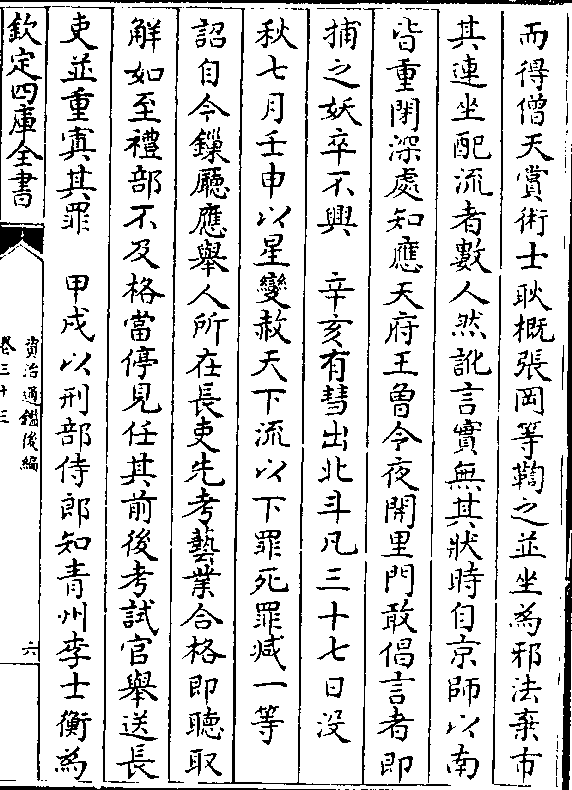 而得僧天賞術士耿概張岡等鞫之並坐為邪法棄市
其連坐配流者數人然訛言實無其狀時自京師以南
皆重閉深處知應天府王曾令夜開里門敢倡言者即
捕之妖卒不興　辛亥有彗出北斗凡三十七日没
秋七月壬申以星變赦天下流以下罪死罪减一等
詔自今鏁廳應舉人所在長吏先考藝業合格即聽取
解如至禮部不及格當停見任其前後考試官舉送長
吏並重寘其罪　甲戌以刑部侍郎知青州李士衡為
欽定四庫全書
資治通鑑後編
卷三十三
六